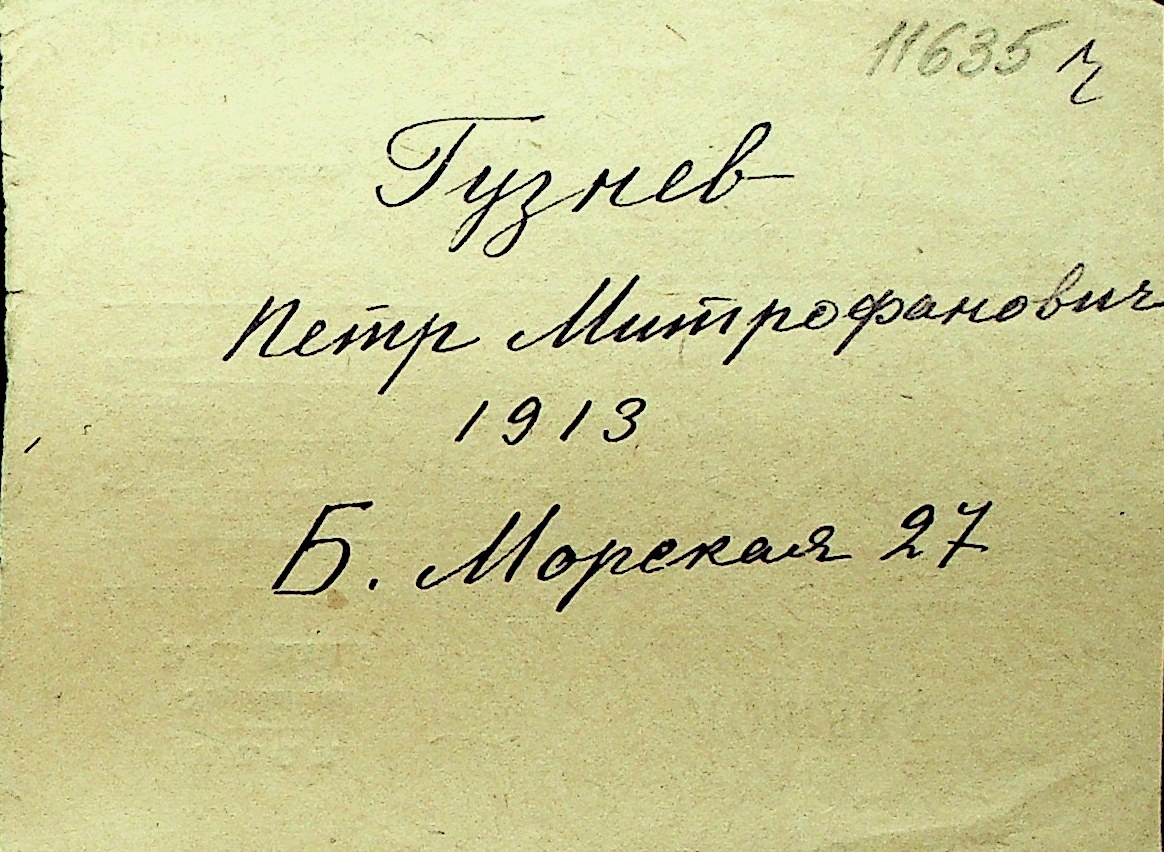 11635 ч
Гузнев
Петр Митрофанович
1913
Б. Морская 27